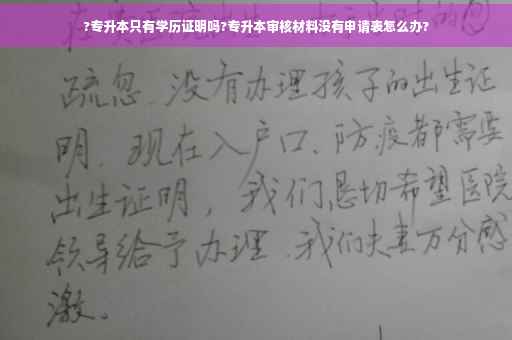 ?专升本只有学历证明吗?专升本审核材料没有申请表怎么办?
疏忽.没有办理孩子的出生证
明.现在入户口、防疫都需要
出生证明，我们恳切希望医院
领导给予办理.我们夫妻万分感
激。